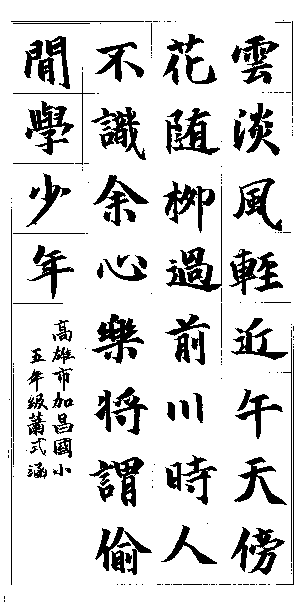 雲淡風輕近午天傍
花随柳過前川時人
不識余心樂將謂偷
閒學少年
高雄市加昌國小
五年級蕭式涵